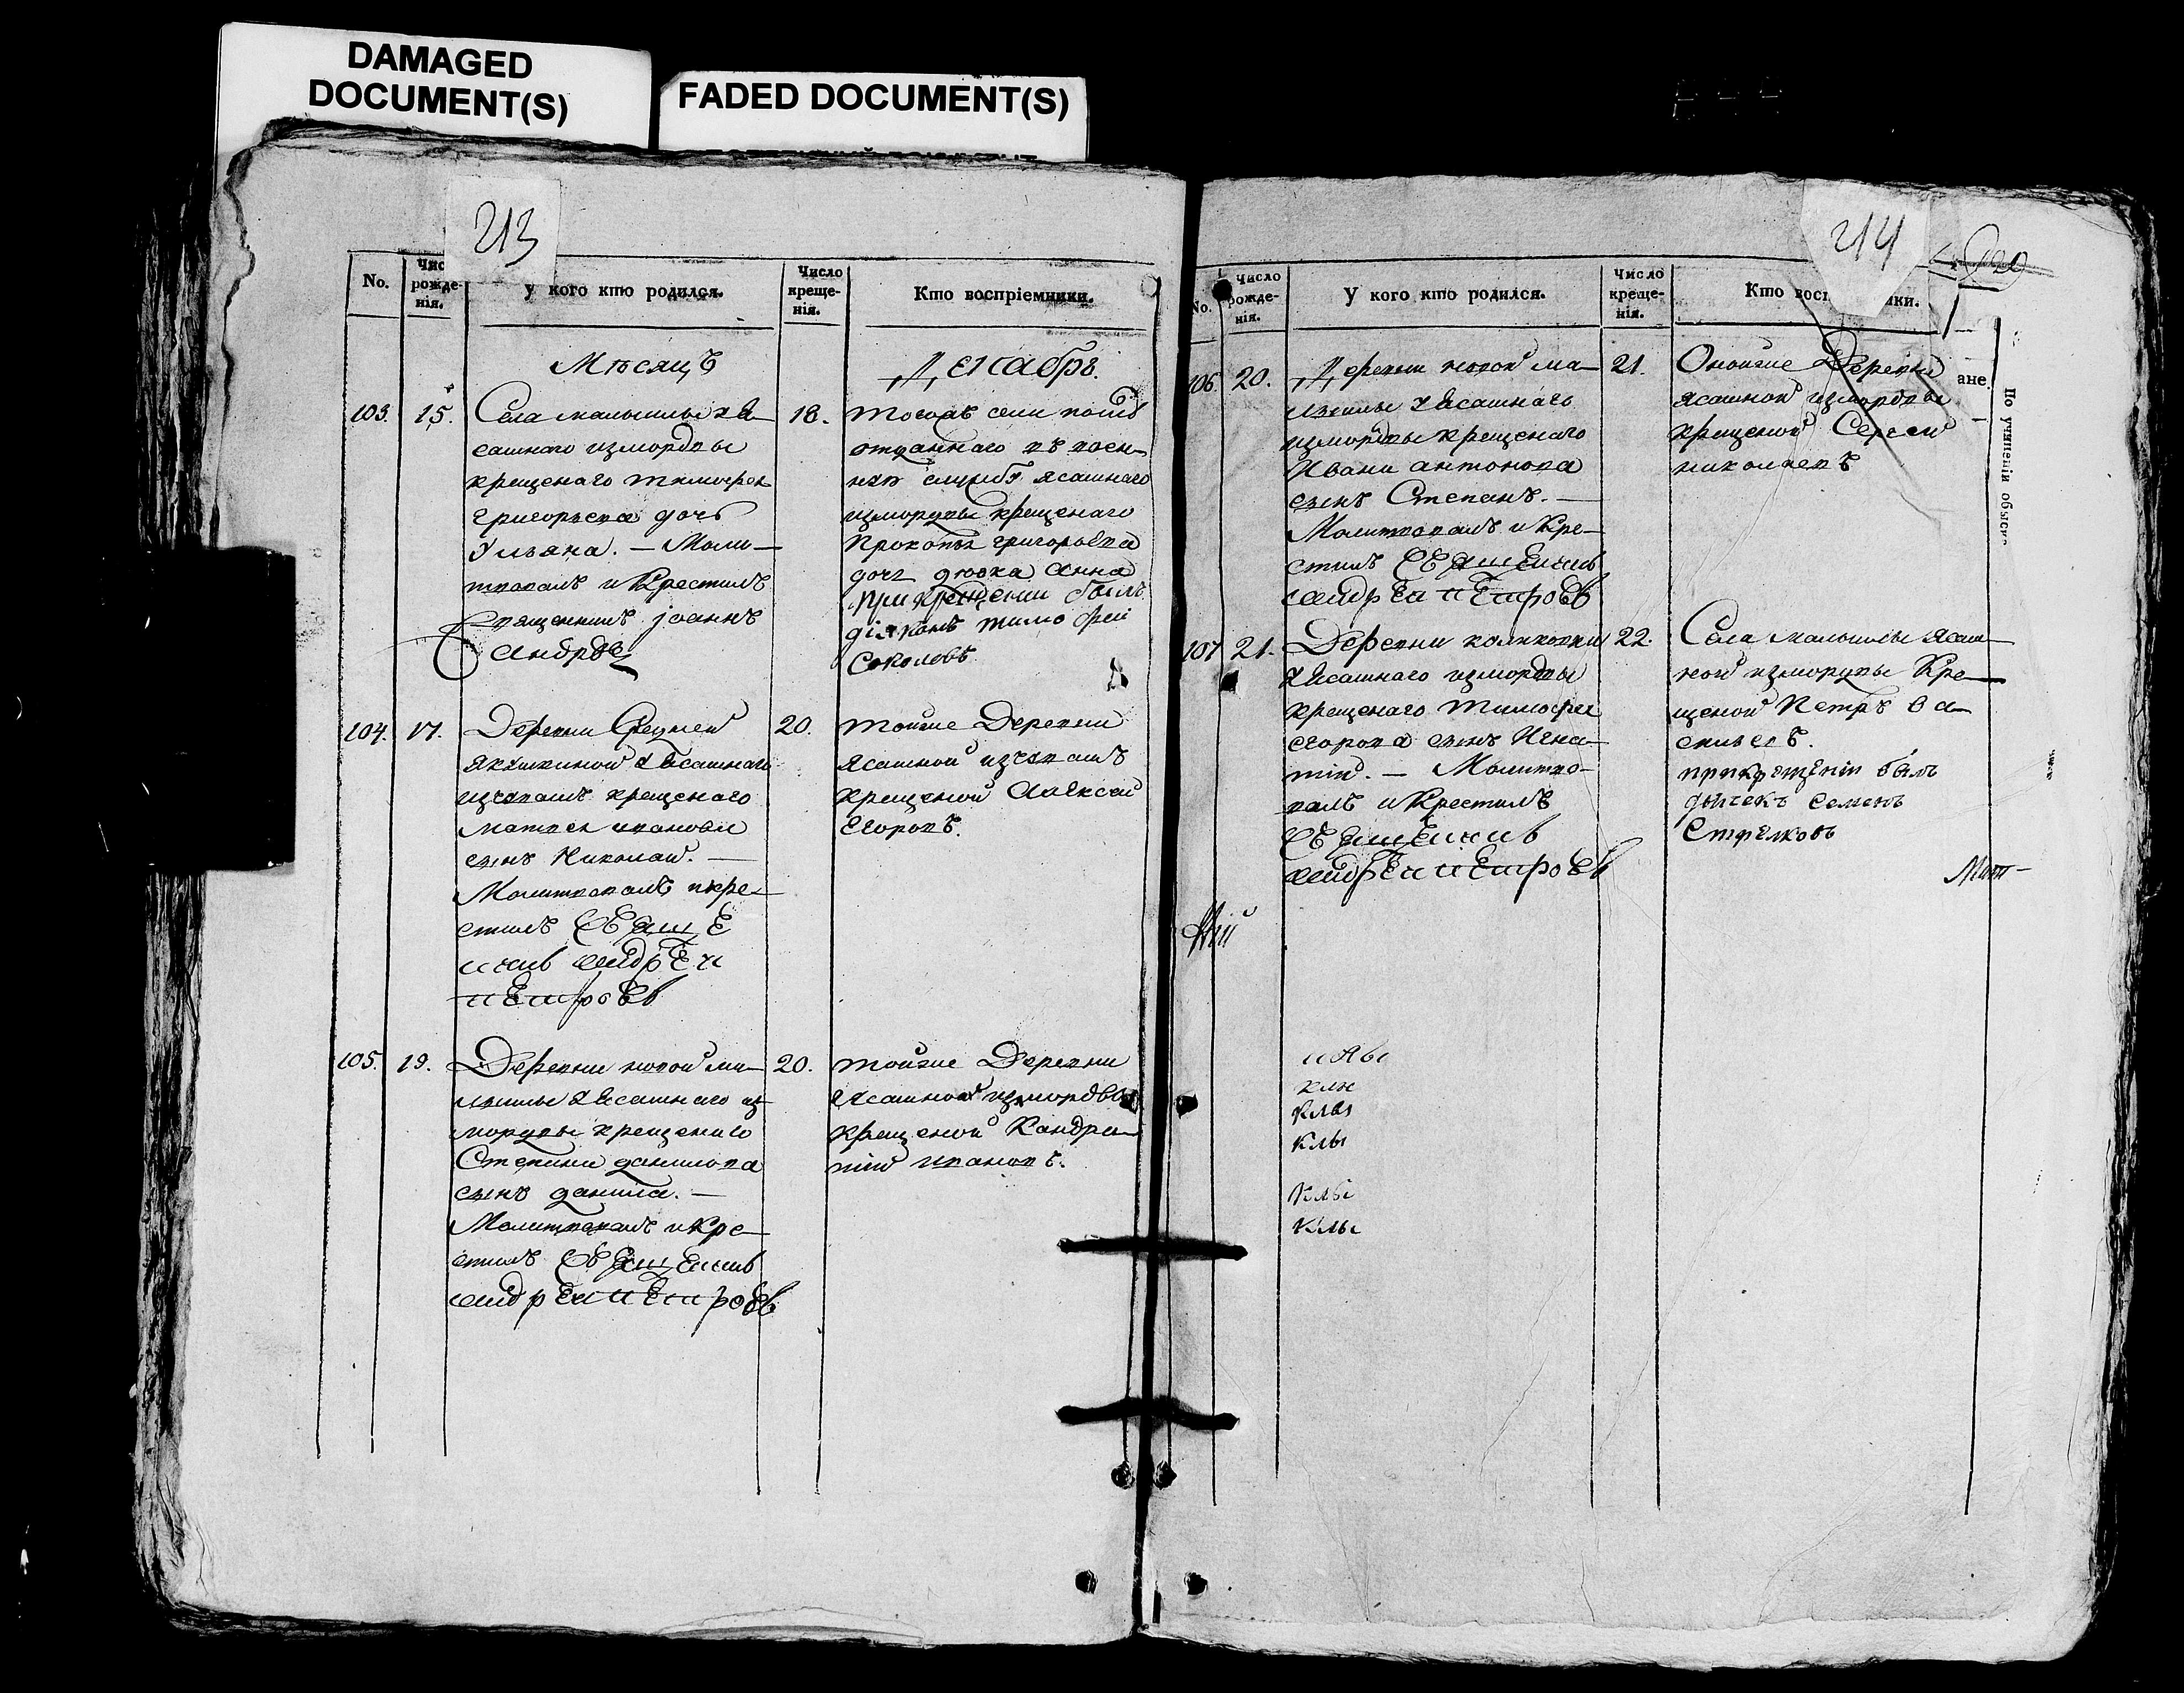 DAMAGED
DOCUMENT(S)
FADED DOCUMENT(S)
213
No.
рожде-
нія.
У кого кто родился.
Число
креще-
нія.
Кто воспріемники.
Мѣсяцъ
Декабрь.
103. 15.
Села малыклы у Я
сашнаго измордвы
крещенаго тимофея
григорьева дочь
Ульяна. — Моли—
твовалъ и Крестилъ
Священникъ іоаннъ
Андрѣев
18.
тогожъ села
отданнаго въ воен-
ную службу ясашнаго
измордвы крещенаго
Прокопья григорьева
дочь дѣвка Анна
при крещении былъ
діяконъ тимофеи
Соколовъ
104. 17.
Деревни Средней
якушкиной у Ясашнаго
изчувашъ крещенаго
матвея иванова
сынъ Николай. —
Молитвовалъ икре—
стилъ СВЯщЕ
ннив андрЕи
пЕтровъ
20.
тойже Деревни
ясашной изчувашъ
крещеной Алексей
Егоровъ.
105. 19.
Деревни новой ма—
лыклы у Ясашнаго из
мордвы крещенаго
Степана данилова
сынъ данила. —
Молитвовалъ иКре—
стилъ СВЯщЕннив
андрЕи пЕтровъ
20.
тойже Деревни
Ясашной измордвы
крещеной Кандра—
тій ивановъ.
214
No.
Число
рожде-
нія.
У кого кто родился.
Число
креще-
нія.
Кто
ики.
ане.
По учиненіи обыск
106. 20.
Деревни новой ма—
лыклы у Ясашнаго
измордвы крещенаго
Ивана антонова
сынъ Степанъ. —
Молитвовалъ и Кре—
стилъ СВЯщЕннив
андрЕи пЕтровъ
21.
Оноиже Деревни
ясашной измордвы
крещеной Сергей
николаевъ
107 21.
Деревни
у Ясашнаго измордвы
крещенаго Тимофея
егорова сынъ Игна—
тій. — Молитво—
валъ и Крестилъ
СВЯщЕннив
андрЕи пЕтровъ
22.
Села малыклы ясаш—
ной измордвы Кре—
щеной Петръ Ва—
сильевъ.
прикрещеніи былъ
дьячекъ Семенъ
Стрелковъ
клы
клы
клы
клы